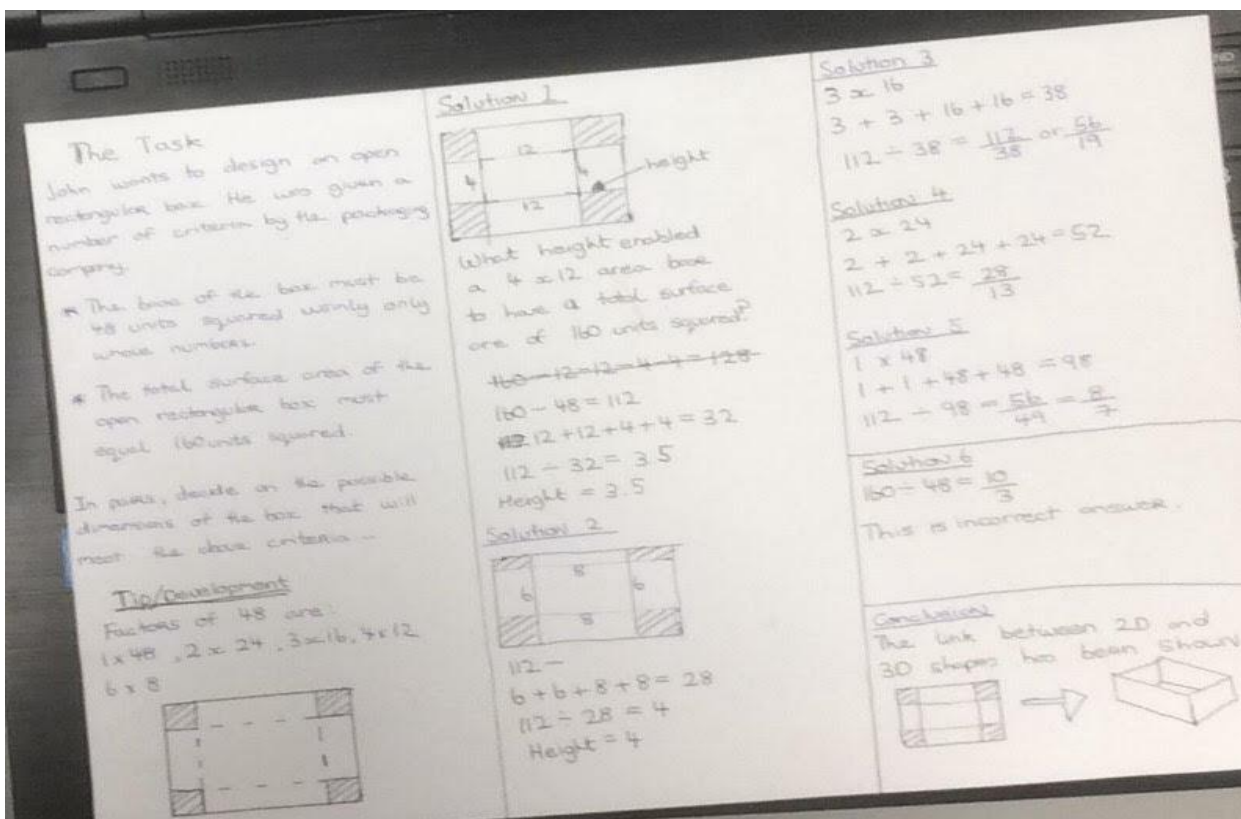 The Task
John wants to design an open
rectangular box. He was given a
number of criteria by the packaging
company.
* The base of the box must be
48 units squared using only
whole numbers.
* The total surface area of the
open rectangular box must
equal 160 units squared.
In pairs, decide on the possible
dimensions of the box that will
meet the above criteria ...
Tip/Development
Factors of 48 are:
1 x 48 , 2 x 24 , 3 x 16 , 4 x 12
6 x 8
Solution 1
12
4
4
height
12
What height enabled
a 4 x 12 area base
to have a total surface
are of 160 units squared?
160 - 12 - 12 - 4 - 4 = 128
160 - 48 = 112
12 + 12 + 4 + 4 = 32
112 ÷ 32 = 3.5
Height = 3.5
Solution 2
8
6
6
8
112 -
6 + 6 + 8 + 8 = 28
112 ÷ 28 = 4
Height = 4
Solution 3
3 x 16
3 + 3 + 16 + 16 = 38
112 ÷ 38 = 112/38 or 56/19
Solution 4
2 x 24
2 + 2 + 24 + 24 = 52
112 ÷ 52 = 28/13
Solution 5
1 x 48
1 + 1 + 48 + 48 = 98
112 ÷ 98 = 56/49 = 8/7
Solution 6
160 - 48 = 10/3
This is incorrect answer.
Conclusion
The link between 2D and
3D shapes has been shown